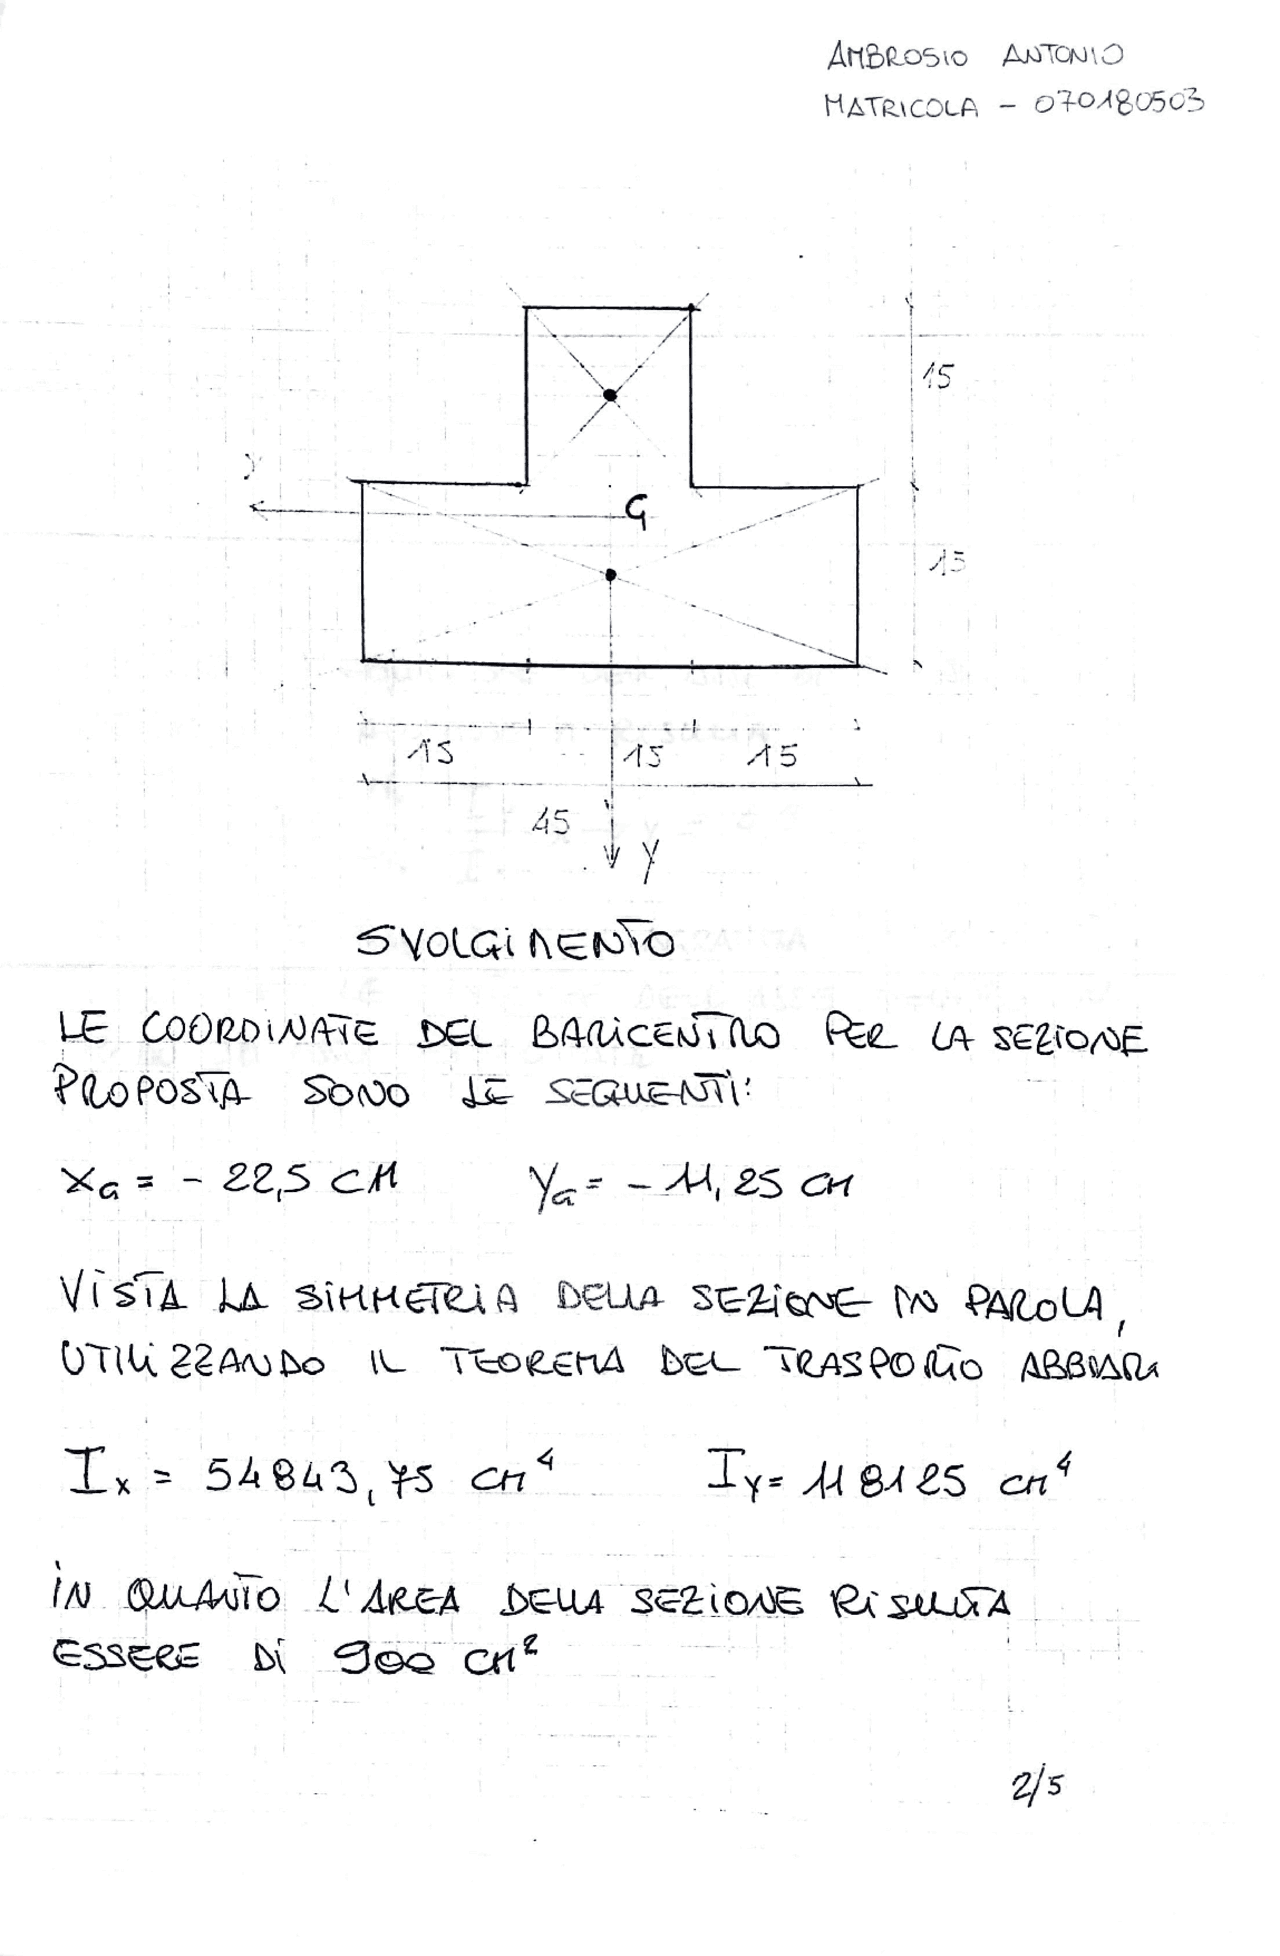 AMBROSIO ANTONIO
MATRICOLA - 070180503
15
G
15
15 15 15
45
Y
SVOLGIMENTO
LE COORDINATE DEL BARICENTRO PER LA SEZIONE
PROPOSTA SONO LE SEGUENTI:
XG = - 22,5 CM YG = - 11,25 CM
VISTA LA SIMMETRIA DELLA SEZIONE IN PAROLA,
UTILIZZANDO IL TEOREMA DEL TRASPORTO ABBIAM
Ix = 54843,75 cm⁴ Iy = 118125 cm⁴
IN QUANTO L'AREA DELLA SEZIONE RISULTA
ESSERE DI 900 CM²
2/5